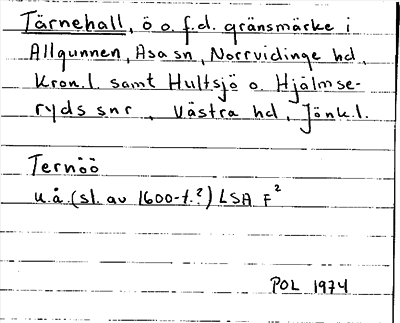 Tärnehall, ö o. f.d. gränsmärke i
Allgunnen, Asa sn, Norrvidinge hd,
Kron.l. samt Hultsjö o. Hjälmse-
ryds snr, Västra hd, Jönk.l.
Ternöö
u.å. (sl. av 1600-t.?) LSA F²
POL 1974